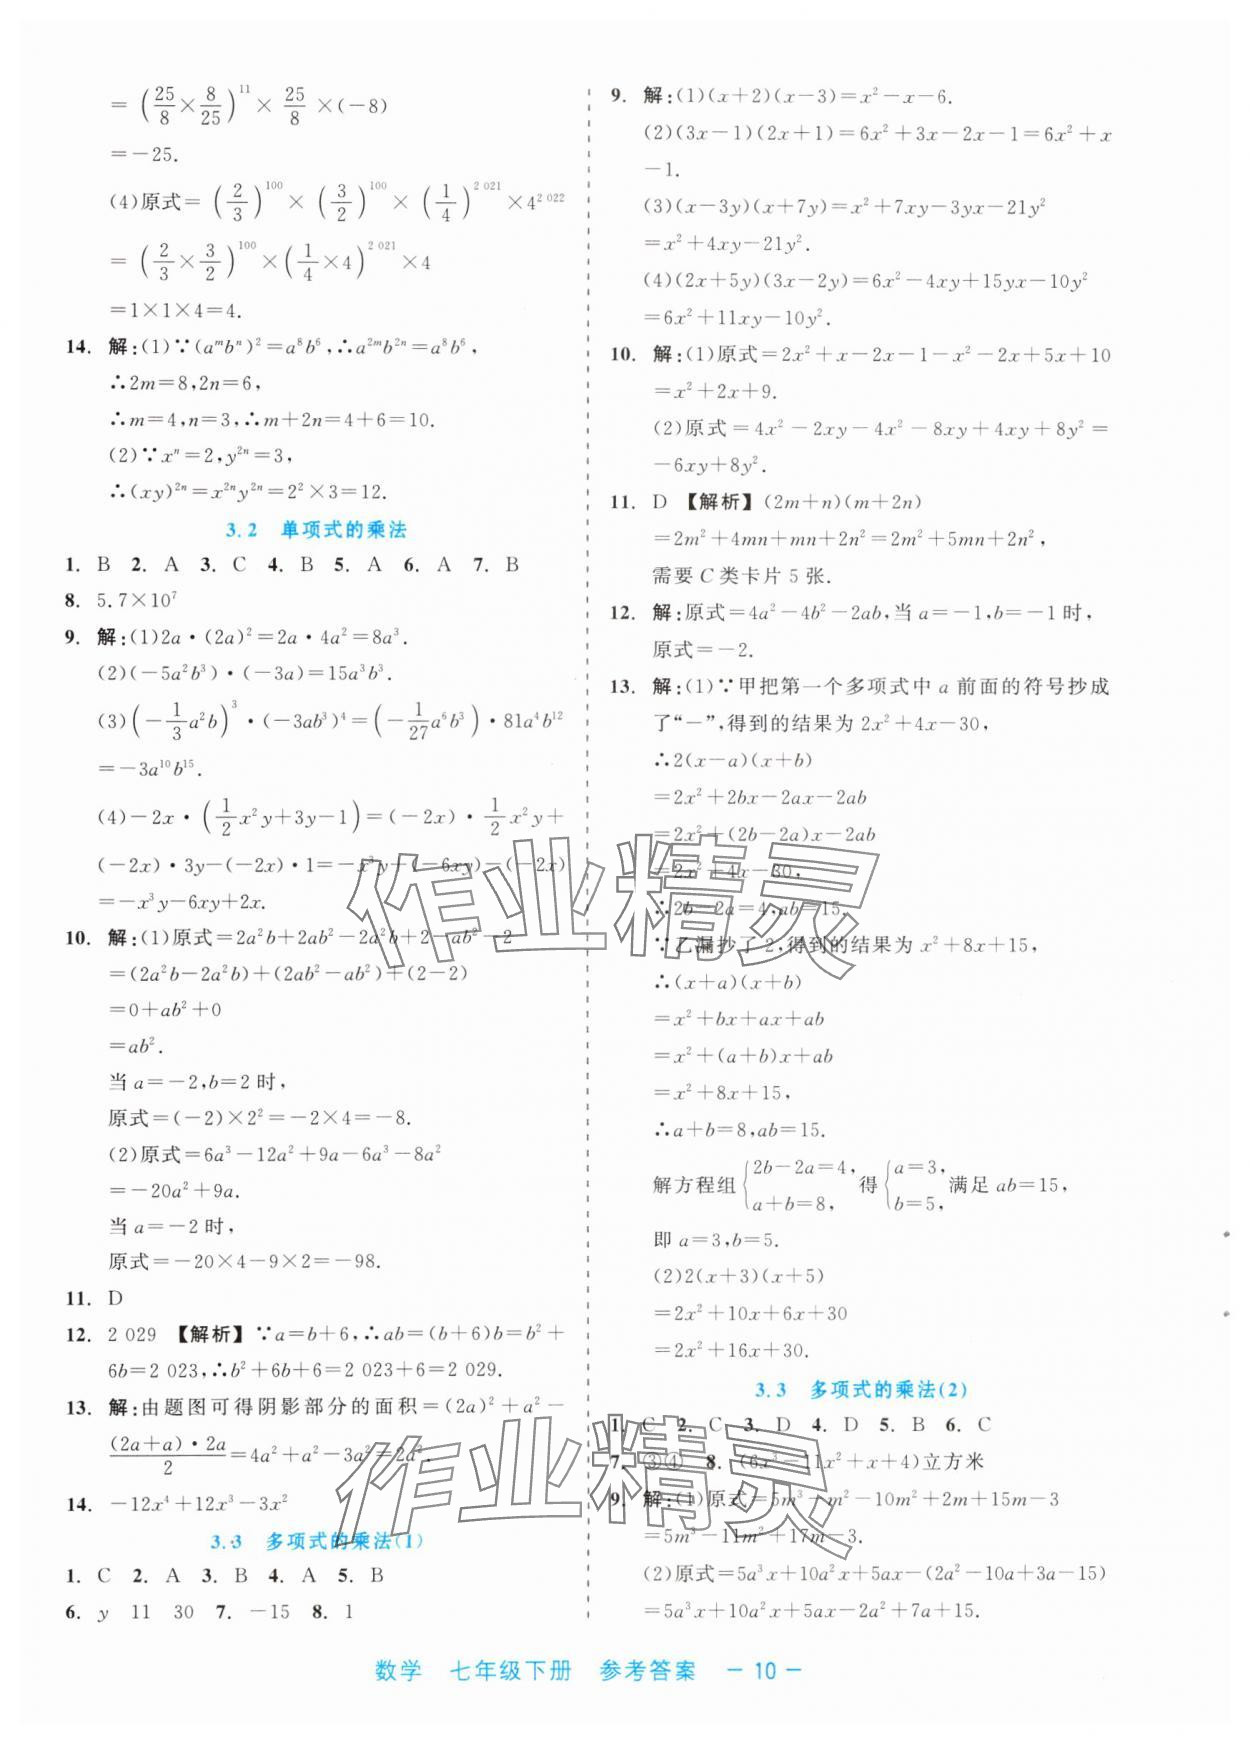 = (25/8 × 8/25)^11 × 25/8 ×(−8)
=−25.
(4)原式= (2/3)^100 × (3/2)^100 × (1/4)^2 021 ×4^2 022
= (2/3 × 3/2)^100 ×(1/4 ×4)^2 021 ×4
=1×1×4=4.
14. 解:(1)∵(a^m b^n)²=a⁸b⁶,∴a^2m b^2n=a⁸b⁶,
∴2m=8,2n=6,
∴m=4,n=3,∴m+2n=4+6=10.
(2)∵x^n=2,y^2n=3,
∴(xy)^2n=x^2n y^2n=2²×3=12.
3.2 单项式的乘法
1. B 2. A 3. C 4. B 5. A 6. A 7. B
8. 5.7×10⁷
9. 解:(1)2a·(2a)²=2a·4a²=8a³.
(2)(−5a²b³)·(−3a)=15a³b³.
(3)(−1/3 a²b)³·(−3ab³)⁴=(−1/27 a⁶b³)·81a⁴b¹²
=−3a¹⁰b¹⁵.
(4)−2x·(1/2 x²y+3y−1)=(−2x)·1/2 x²y+
(−2x)·3y−(−2x)·1=−x³y+(−6xy)−(−2x)
=−x³y−6xy+2x.
10. 解:(1)原式=2a²b+2ab²−2a²b+2−ab²−2
=(2a²b−2a²b)+(2ab²−ab²)+(2−2)
=0+ab²+0
=ab².
当a=−2,b=2时,
原式=(−2)×2²=−2×4=−8.
(2)原式=6a³−12a²+9a−6a³−8a²
=−20a²+9a.
当a=−2时,
原式=−20×4−9×2=−98.
11. D
12. 2 029 【解析】∵a=b+6,∴ab=(b+6)b=b²+
6b=2 023,∴b²+6b+6=2 023+6=2 029.
13. 解:由题图可得阴影部分的面积=(2a)²+a²−
(2a+a)·2a/2=4a²+a²−3a²=2a².
14. −12x⁴+12x³−3x²
3.3 多项式的乘法(1)
1. C 2. A 3. B 4. A 5. B
6. y 11 30 7. −15 8. 1
9. 解:(1)(x+2)(x−3)=x²−x−6.
(2)(3x−1)(2x+1)=6x²+3x−2x−1=6x²+x
−1.
(3)(x−3y)(x+7y)=x²+7xy−3yx−21y²
=x²+4xy−21y².
(4)(2x+5y)(3x−2y)=6x²−4xy+15yx−10y²
=6x²+11xy−10y².
10. 解:(1)原式=2x²+x−2x−1−x²−2x+5x+10
=x²+2x+9.
(2)原式=4x²−2xy−4x²−8xy+4xy+8y²=
−6xy+8y².
11. D 【解析】(2m+n)(m+2n)
=2m²+4mn+mn+2n²=2m²+5mn+2n²,
需要C类卡片5张.
12. 解:原式=4a²−4b²−2ab,当a=−1,b=−1时,
原式=−2.
13. 解:(1)∵甲把第一个多项式中a前面的符号抄成
了“−”,得到的结果为2x²+4x−30,
∴2(x−a)(x+b)
=2x²+2bx−2ax−2ab
=2x²+(2b−2a)x−2ab
=2x²+4x−30,
∴2b−2a=4,ab=15.
∵乙漏抄了2,得到的结果为x²+8x+15,
∴(x+a)(x+b)
=x²+bx+ax+ab
=x²+(a+b)x+ab
=x²+8x+15,
∴a+b=8,ab=15.
解方程组{2b−2a=4, a+b=8, 得{a=3, b=5, 满足ab=15,
即a=3,b=5.
(2)2(x+3)(x+5)
=2x²+10x+6x+30
=2x²+16x+30.
3.3 多项式的乘法(2)
1. C 2. C 3. D 4. D 5. B 6. C
7. ③④ 8. (6x³−11x²+x+4)立方米
9. 解:(1)原式=5m³−m²−10m²+2m+15m−3
=5m³−11m²+17m−3.
(2)原式=5a³x+10a²x+5ax−(2a²−10a+3a−15)
=5a³x+10a²x+5ax−2a²+7a+15.
数学 七年级下册 参考答案 −10−
作业精灵
作业精灵